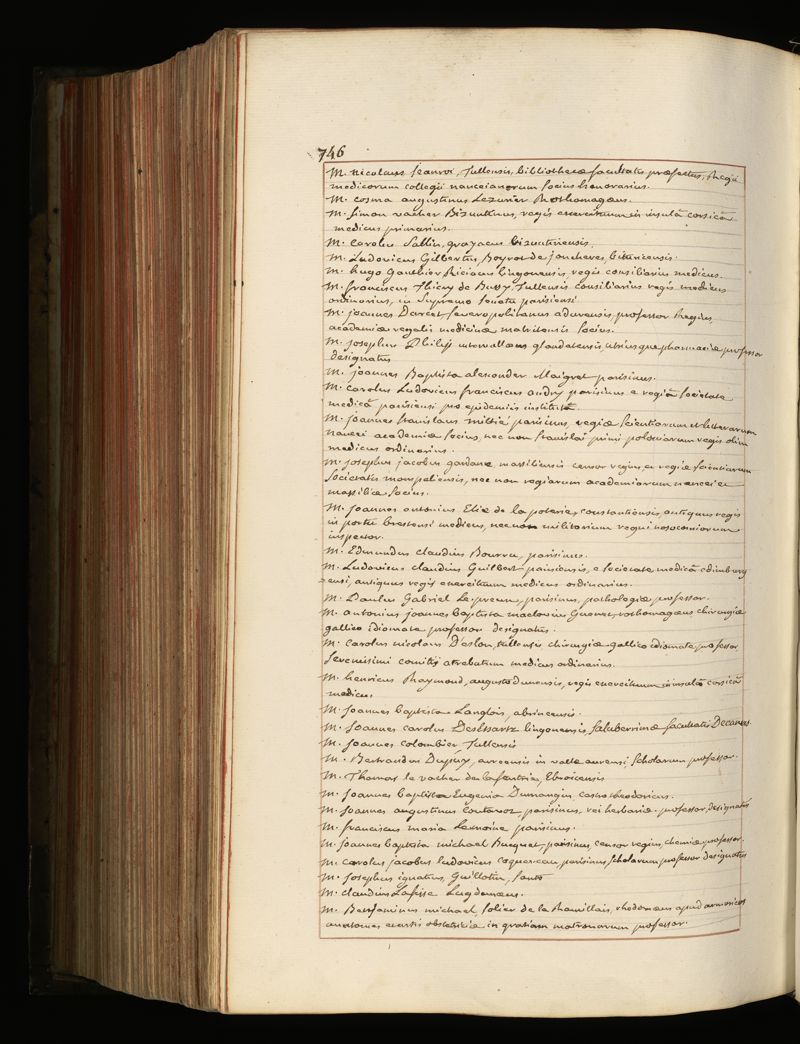 746
M. nicolaus Jeanroi, Tullensis, bibliothecæ facultatis præfectus, Regii
medicorum collegii nanceianorum socius honorarius.
M. cosma augustinus Lezurier Rothomagæus.
M. Simon vacher Bizuntinus, regis exercituum in insulâ corsicâ
medicus primarius.
M. carolus Sallin, grayacus bizuntinensis.
M. Ludovicus Gilbertus Boyrot de joncheres, bituricensis.
M. hugo Gauthier Riciacus lingonensis, regis consiliarius medicus.
M. franciscus Thiery de Bussy Tullensis consiliarius regis medicus
ordinarius, in Supremo senatu parisiensi
M. joannes Darcet severopolitanus adurensis, professor Regius,
academiæ regalis medicinæ matritensis socius.
M. josephus Philip intervallæus glandatensis, utriusque pharmaciæ professor
designatus
M. joannes Baptista alexander Maigret parisinus.
M. carolus Ludovicus franciscus andry parisinus e regiâ societate
medicâ parisiensi pro epidemiis institutâ.
M. joannes stanislaus mittié parisinus, regiæ scientiarum et litterarum
nanceii academiæ socius, nec non stanislai primi poloniarum regis olim
medicus ordinarius.
M. josephus jacobus gardane, massiliensis censor regius, e regiæ scientiarum
societatis monspeliensis, nec non regiarum academiarum nanceiæ
massiliæ socius.
M. joannes antonius Elie de la poterie, constantiensis, antiquus regis
in portu brestensi medicus, nec non militarium regni nosocomiorum
inspector.
M. Edmundus claudius Bourru, parisinus.
M. Ludovicus claudius Guilbert parisiensis, e societate medicâ edimburg
ensi, antiquus regis exercituum medicus ordinarius.
M. Paulus Gabriel Le preux, parisinus, pathologiæ professor.
M. antonius joannes baptista maclovius Guenet, rothomagæus chirurgiæ
gallico idiomate professor designatus.
M. carolus nicolaus D'eslon, tullensis chirurgiæ gallico idiomate professor
serenissimi comitis atrebatum medicus ordinarius.
M. henricus Raymond, augustodunensis, regis exercituum in insulâ corsicâ
medicus
M. joannes baptista Langlois, abrincensis.
M. joannes carolus Desessartz lingonensis, saluberrimæ facultatis Decanus.
M. joannes colombier Tullensis
M. Bertrandus Dupuy, aureensis in valle aurensi scholarum professor.
M. Thomas le vacher de la feutrie, Ebroicensis
M. joannes baptista Eugenia Dumangin castrotheodoricus.
M. joannes augustinus coutavoz, parisinus, rei herbariæ professor, designatus
M. franciscus maria Lemoine parisinus.
M. joannes baptista michael Bucquet, parisinus, censor regius, chemiæ professor.
M. carolus jacobus ludovicus coquereau, parisinus scholarum professor designatus
M. josephus ignatius Guillotin, santo
M. claudius Lafisse Lugdunæus.
M. Benjaminus michael solier de la Romillais, rhedonæus apud armoricos
anatomes et artis obstetriciæ in gratiam matronarum professor.